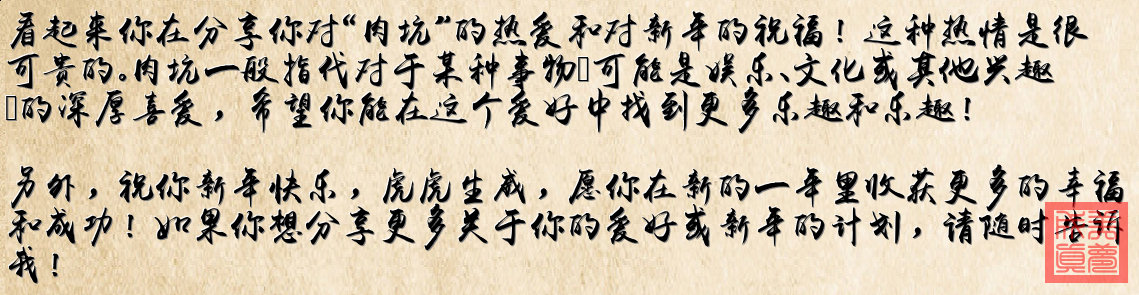 看起来你在分享你对“肉坑”的热爱和对新年的祝福！这种热情是很
可贵的。肉坑一般指代对于某种事物▯可能是娱乐、文化或其他兴趣
▯的深厚喜爱，希望你能在这个爱好中找到更多乐趣和乐趣！
另外，祝你新年快乐，虎虎生威，愿你在新的一年里收获更多的幸福
和成功！如果你想分享更多关于你的爱好或新年的计划，请随时告诉
我！